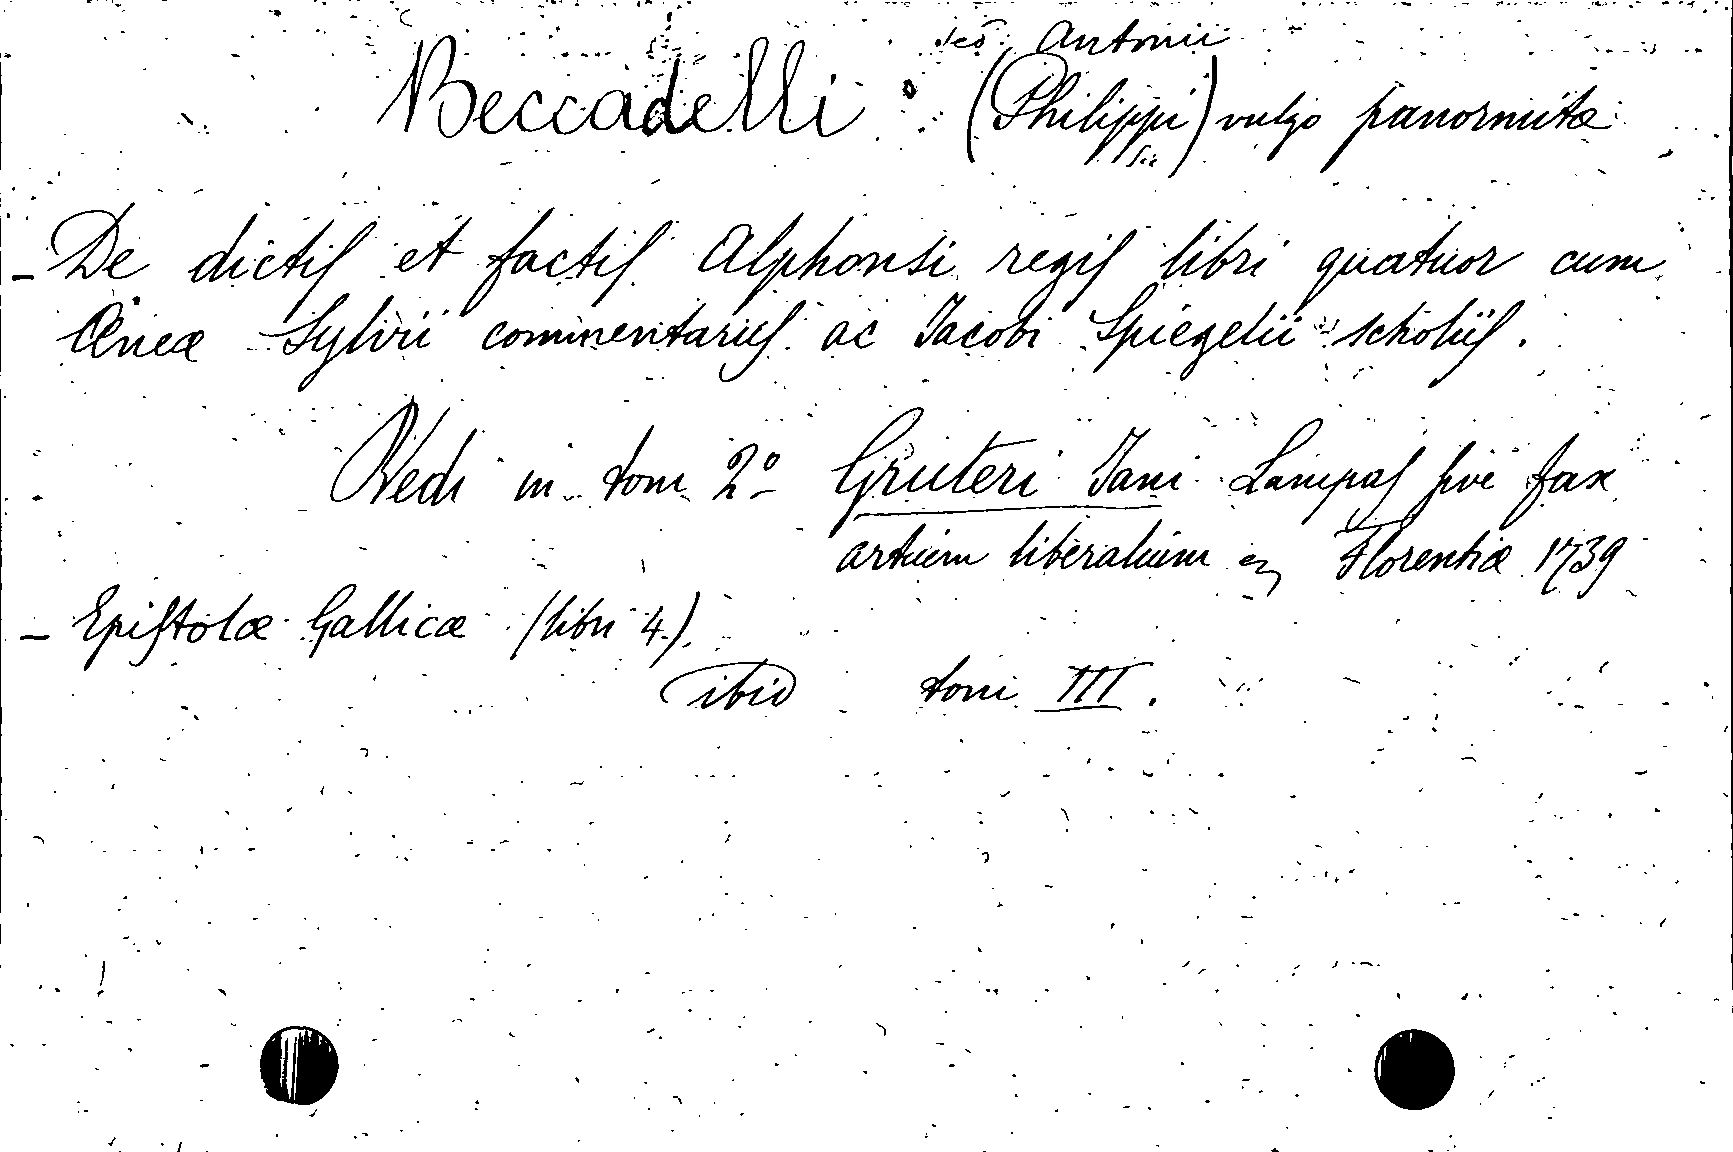 sed Antonii
Beccadelli : (Philippi) vulgo panormitæ
sic
- De dictis et factis Alphonsi regis libri quatuor cum
Æneæ Sylvii commentariis ac Jacobi Spiegelii scholiis.
Vedi in tom 2º Gruteri Jani Lampas sive fax
artium liberalium Florentiæ 1739
- Epistolæ Gallicæ (libri 4.)
ibid tom III.